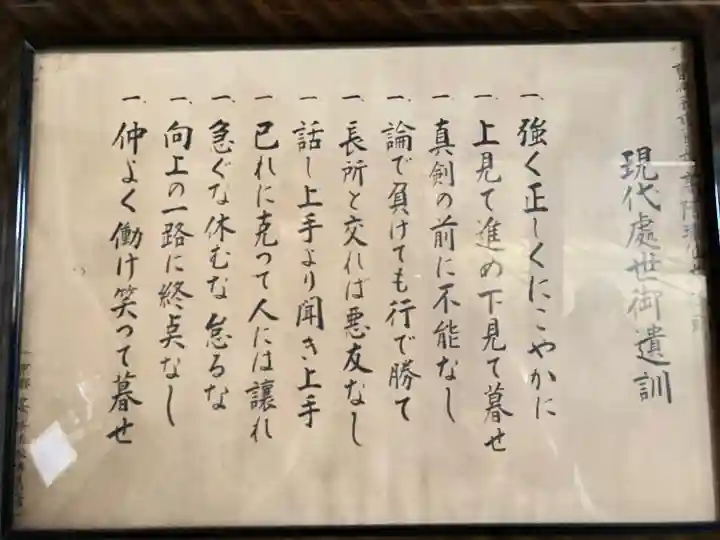 現代處世御遺訓
一、強く正しくにこやかに
一、上見て進め下見て暮せ
一、真剣の前に不能なし
一、論で負けても行で勝て
一、長所と交れば悪友なし
一、話し上手より聞き上手
一、己れに克つて人には譲れ
一、急ぐな休むな怠るな
一、向上の一路に終点なし
一、仲よく働け笑つて暮せ